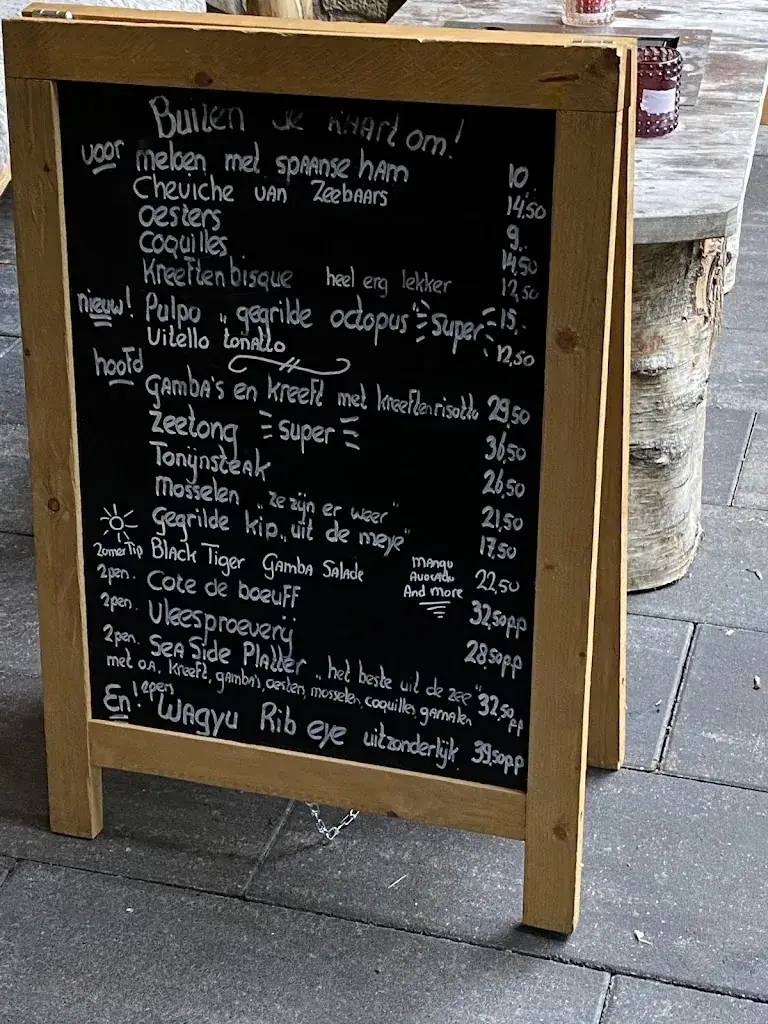 Buiten de kaart om!
voor meloen met spaanse ham 10.
Cheviche van Zeebaars 14,50
oesters 9,-
coquilles 14,50
Kreeften bisque heel erg lekker 12,50
nieuw! Pulpo „gegrilde octopus" super 15,-
Vitello tonatto 12,50
hoofd
Gamba's en kreeft met kreeftenrisotto 29,50
Zeetong super 36,50
Tonijnsteak 26,50
mosselen „ze zijn er weer" 21,50
Gegrilde kip „uit de meye" 17,50
ZomerTip Black Tiger Gamba Salade Mango Avocado And more 22,50
2pen. Cote de boeuff 32,50pp
2pen. Vleesproeverij 28,50pp
2pen. Sea Side Platter „het beste uit de zee" 32,50pp
met o.a. kreeft, gamba's, oesten, mosselen, coquilles, garnalen
En! 2pen Wagyu Rib eye uitzonderlijk. 39,50pp